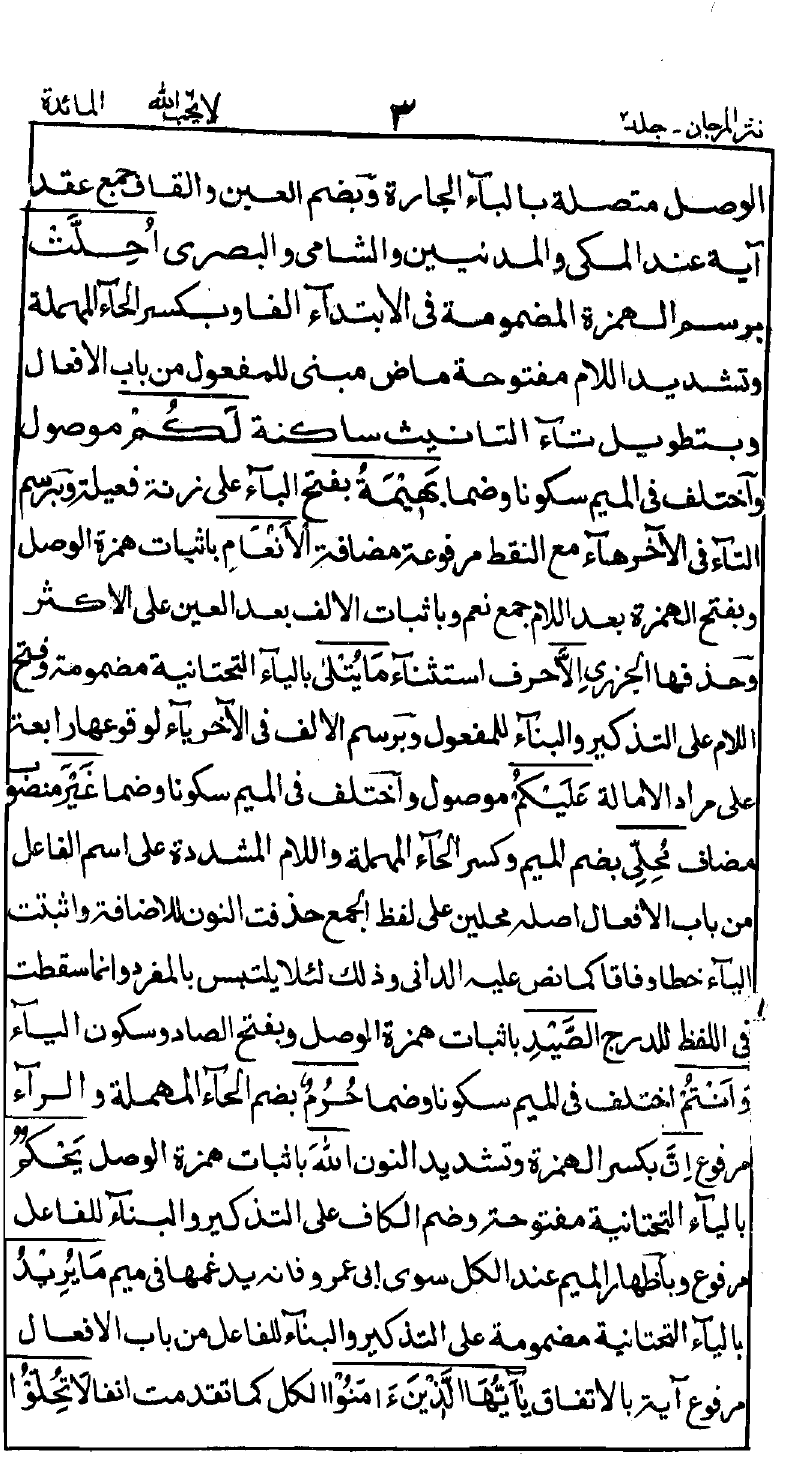 نثر المرجان - جلد٢ ٣ لا يحب الله المائدة
الوصل متصلة بالبآء الجارة وبضم العين والقاف جمع عقد
آية عند المكى والمدنيين والشامى والبصرى اُحِلَّتْ
برسم الهمزة المضمومة فى الابتدآء الفا وبكسر الحآء المهملة
وتشديد اللام مفتوحة ماض مبنى للمفعول من باب الافعال
وبتطويل تآء التانيث ساكنة لَكُمْ موصول
وآختلف فى الميم سكونا وضما بَهِيْمَةُ بفتح البآء على زنة فعيلة وبرسم
التآء فى الآخر هآء مع النقط مرفوعة مضافة الْاَنْعَامِ باثبات همزة الوصل
وبفتح الهمزة بعد اللام جمع نعم وباثبات الالف بعد العين على الاكثر
وحذفها الجزرى اِلَّا حرف استثنآء مَا يُتْلٰى بالياء التحتانية مضمومة وفتح
اللام على التذكير والبنآء للمفعول وبرسم الالف فى الآخر يآء لوقوعها رابعة
على مراد الامالة عَلَيْكُمْ موصول وآختلف فى الميم سكونا وضما غَيْرَ منصوب
مضاف مُحِلِّى بضم الميم وكسر الحآء المهملة واللام المشددة على اسم الفاعل
من باب الافعال اصله محلين على لفظ الجمع حذفت النون للاضافة واثبتت
اليآء خطا وفاقا كما نص عليه الدانى وذلك لئلا يلتبس بالمفرد وانما سقطت
فى اللفظ للدرج الصَّيْدِ باثبات همزة الوصل وبفتح الصاد وسكون اليآء
وَاَنْتُمْ اختلف فى الميم سكونا وضما حُرُمٌ بضم الحآء المهملة والرآء
مرفوع اِنَّ بكسر الهمزة وتشديد النون اللّٰهَ باثبات همزة الوصل يَحْكُمُ
باليآء التحتانية مفتوحة وضم الكاف على التذكير والبنآء للفاعل
مرفوع وبآظهار الميم عند الكل سوى ابى عمرو فانه يدغمها فى ميم مَا يُرِيْدُ
باليآء التحتانية مضمومة على التذكير والبنآء للفاعل من باب الافعال
مرفوع آية بالاتفاق يٰٓاَيُّهَا الَّذِيْنَ ءَامَنُوْا الكل كما تقدمت انفا لَا تُحِلُّوْا